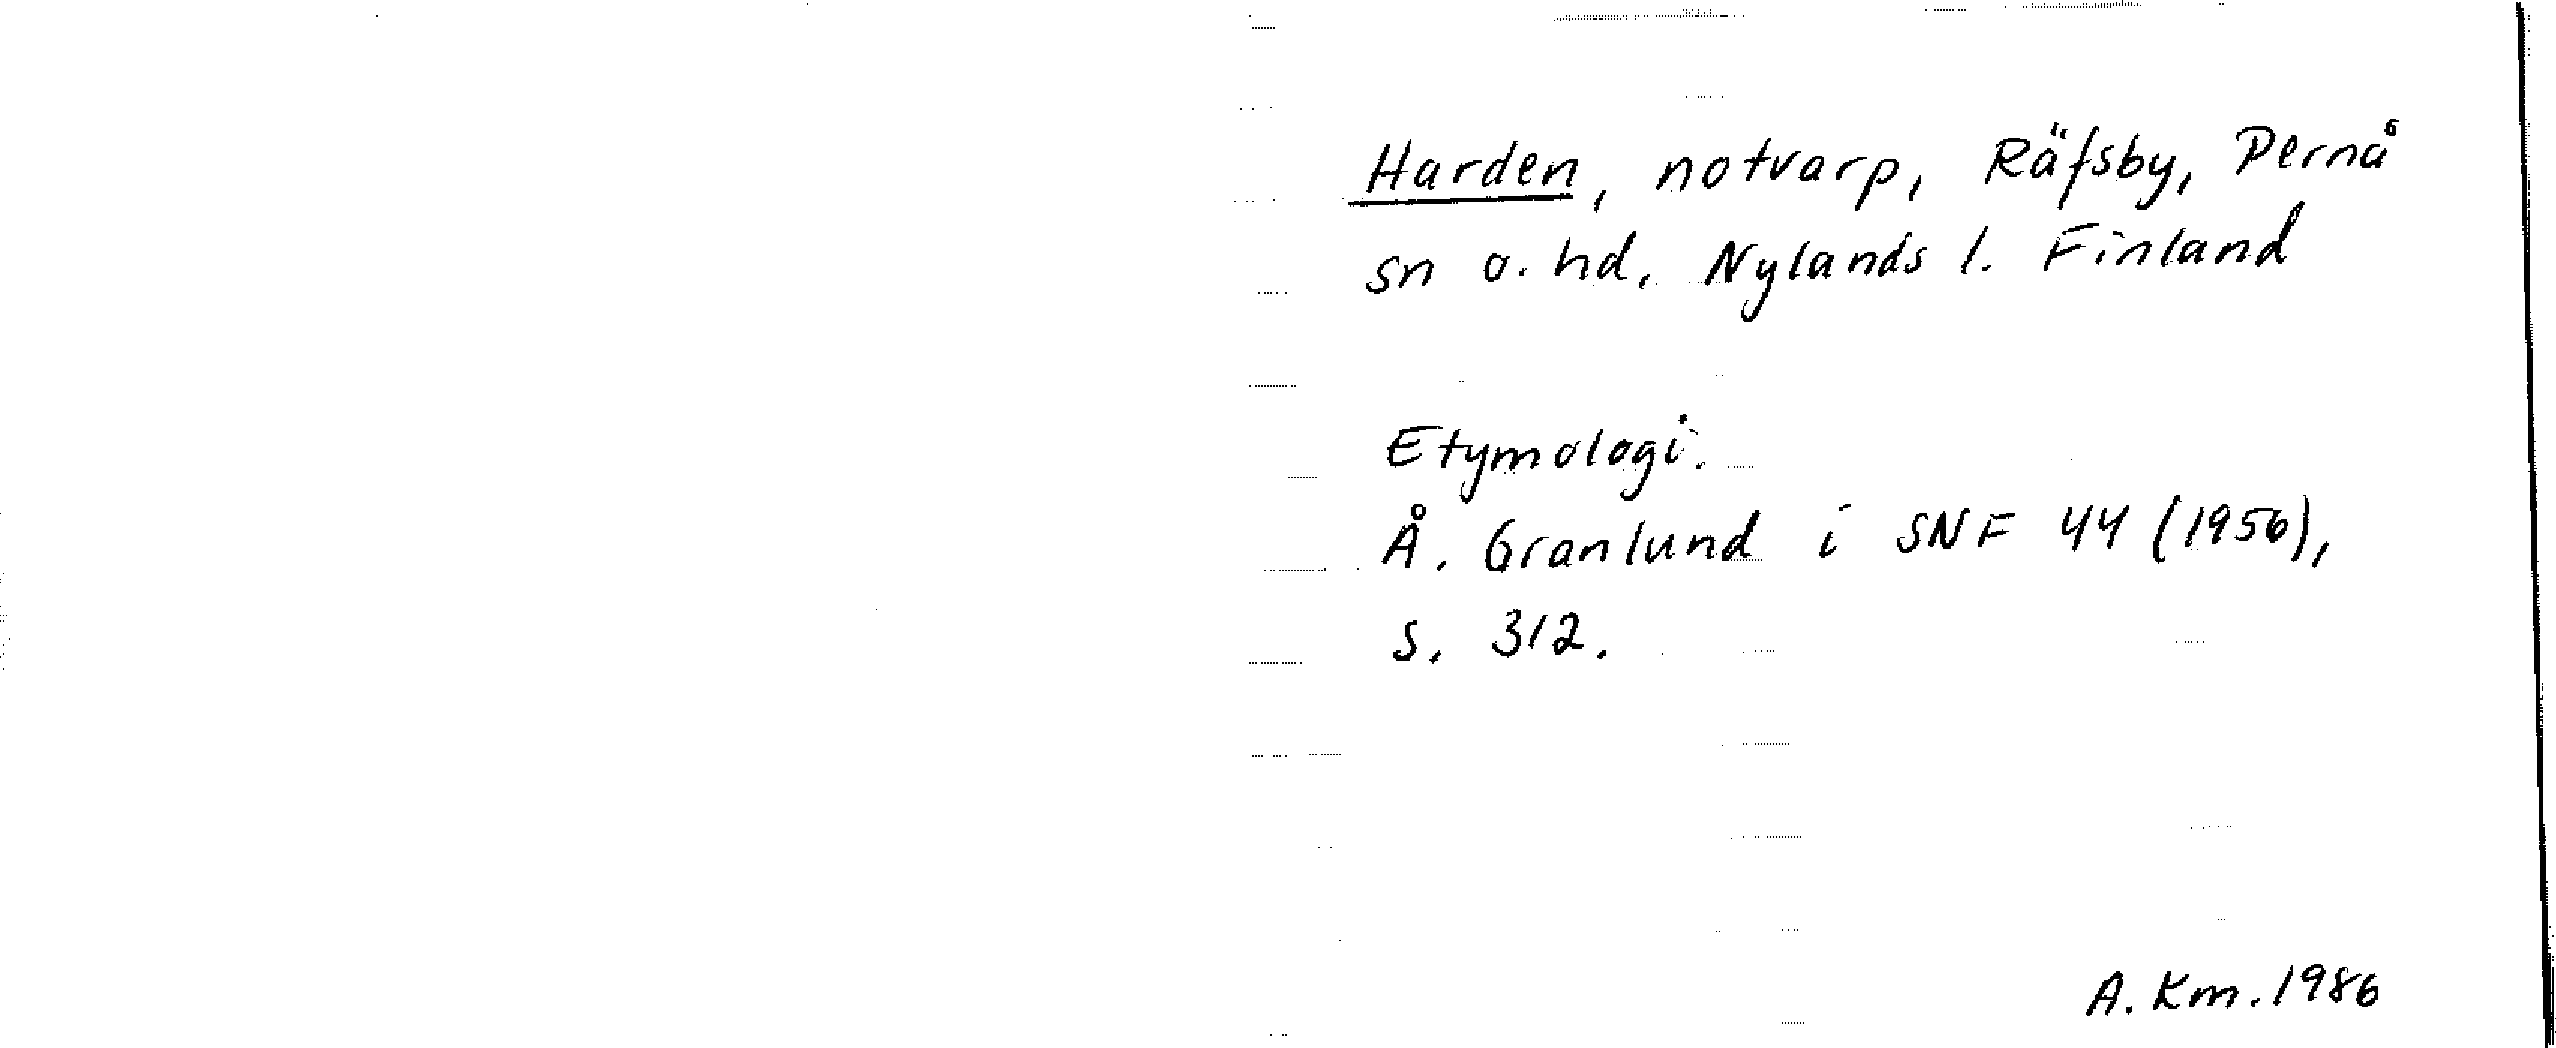 Harden, notvarp, Räfsby, Pernå
sn o. hd, Nylands l. Finland
Etymologi.
Å. Granlund i SNF 44 (1956),
s. 312.
A. Km. 1986